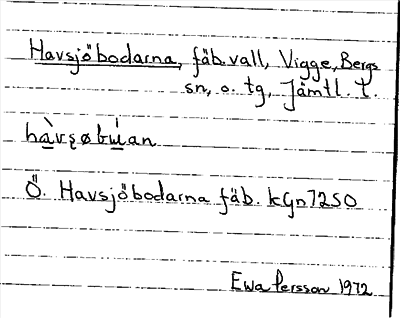 Havsjöbodarna, fäb.vall, Vigge, Bergs
sn, o. tg, Jämtl. l.
Ö. Havsjöbodarna fäb. kGn7250
Ewa Persson 1972